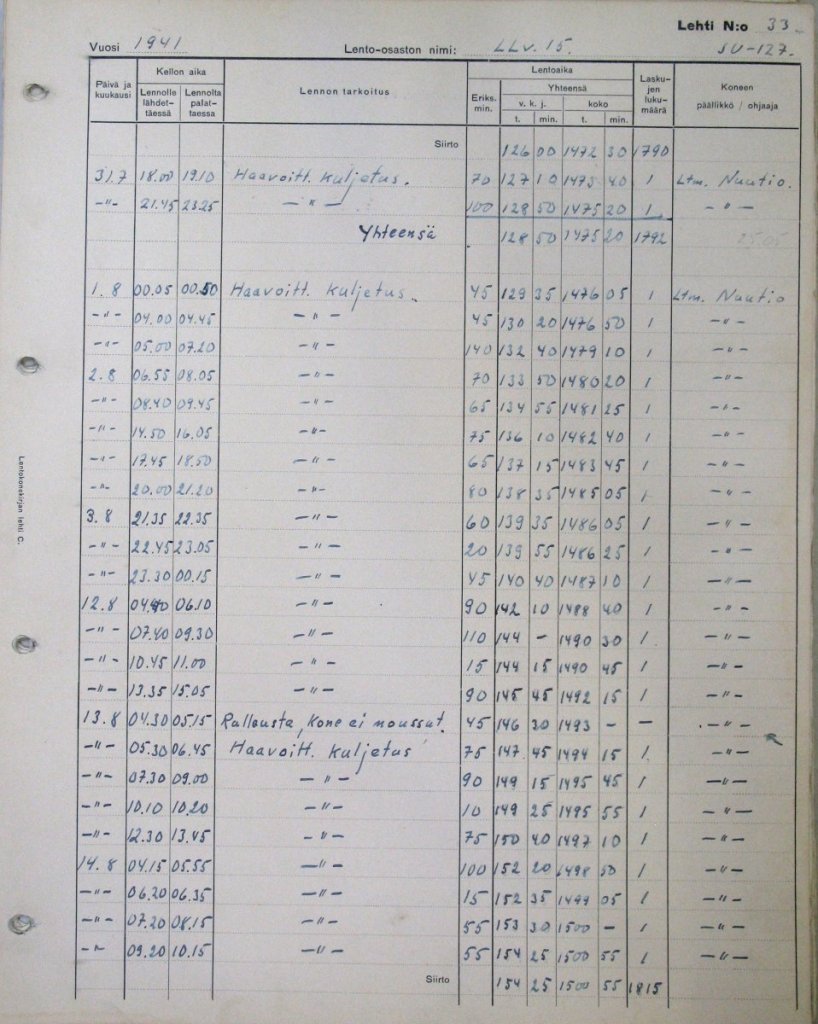 Lehti N:o 33
Vuosi 1941 Lento-osaston nimi: LLv. 15. SU-127.
Päivä ja kuukausi Kellon aika Lennolle lähdettäessä Lennolta palattaessa Lennon tarkoitus Lentoaika Eriks. min. Yhteensä v. k. j. t. min. koko t. min. Laskujen lukumäärä Koneen päällikkö / ohjaaja
Siirto 126 00 1472 30 1790
31.7 18.00 19.10 Haavoitt. kuljetus. 70 127 10 1473 40 1 Ltm. Nuutio.
-"- 21.45 23.25 -"- 100 128 50 1475 20 1 -"-
Yhteensä 128 50 1475 20 1792
1.8 00.05 00.50 Haavoitt. kuljetus. 45 129 35 1476 05 1 Ltm. Nuutio
-"- 04.00 04.45 -"- 45 130 20 1476 50 1 -"-
-"- 05.00 07.20 -"- 140 132 40 1479 10 1 -"-
2.8 06.55 08.05 -"- 70 133 50 1480 20 1 -"-
-"- 08.40 09.45 -"- 65 134 55 1481 25 1 -"-
-"- 14.50 16.05 -"- 75 136 10 1482 40 1 -"-
-"- 17.45 18.50 -"- 65 137 15 1483 45 1 -"-
-"- 20.00 21.20 -"- 80 138 35 1485 05 1 -"-
3.8 21.35 22.35 -"- 60 139 35 1486 05 1 -"-
-"- 22.45 23.05 -"- 20 139 55 1486 25 1 -"-
-"- 23.30 00.15 -"- 45 140 40 1487 10 1 -"-
12.8 04.40 06.10 -"- 90 142 10 1488 40 1 -"-
-"- 07.40 09.30 -"- 110 144 - 1490 30 1 -"-
-"- 10.45 11.00 -"- 15 144 15 1490 45 1 -"-
-"- 13.35 15.05 -"- 90 145 45 1492 15 1 -"-
13.8 04.30 05.15 Rullausta, kone ei noussut. 45 146 30 1493 - - -"-
-"- 05.30 06.45 Haavoitt. kuljetus 75 147 45 1494 15 1 -"-
-"- 07.30 09.00 -"- 90 149 15 1495 45 1 -"-
-"- 10.10 10.20 -"- 10 149 25 1495 55 1 -"-
-"- 12.30 13.45 -"- 75 150 40 1497 10 1 -"-
14.8 04.15 05.55 -"- 100 152 20 1498 50 1 -"-
-"- 06.20 06.35 -"- 15 152 35 1499 05 1 -"-
-"- 07.20 08.15 -"- 55 153 30 1500 - 1 -"-
-"- 09.20 10.15 -"- 55 154 25 1500 55 1 -"-
Siirto 154 25 1500 55 1815
Lentokonekirjan lehti C.